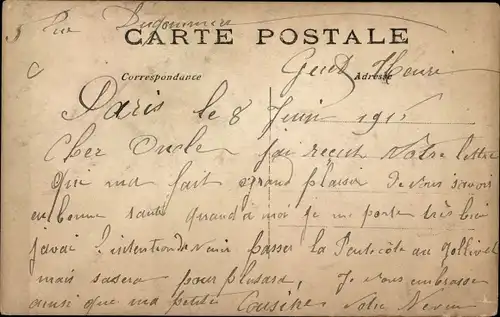 5 Rue Dugommier
CARTE POSTALE
Correspondance Adresse
Henri
Paris le 8 Juin 191
Cher Oncle j'ai recut votre lettre
qui ma fait grand plaisir de vous savoir
en bonne santé quand a moi je me porte très bien
javai l'intention de venir passer la Pentecôte au
mais sasera pour plusard, Je vous embrasse
ainsi que ma petite Cousine Votre Neveu